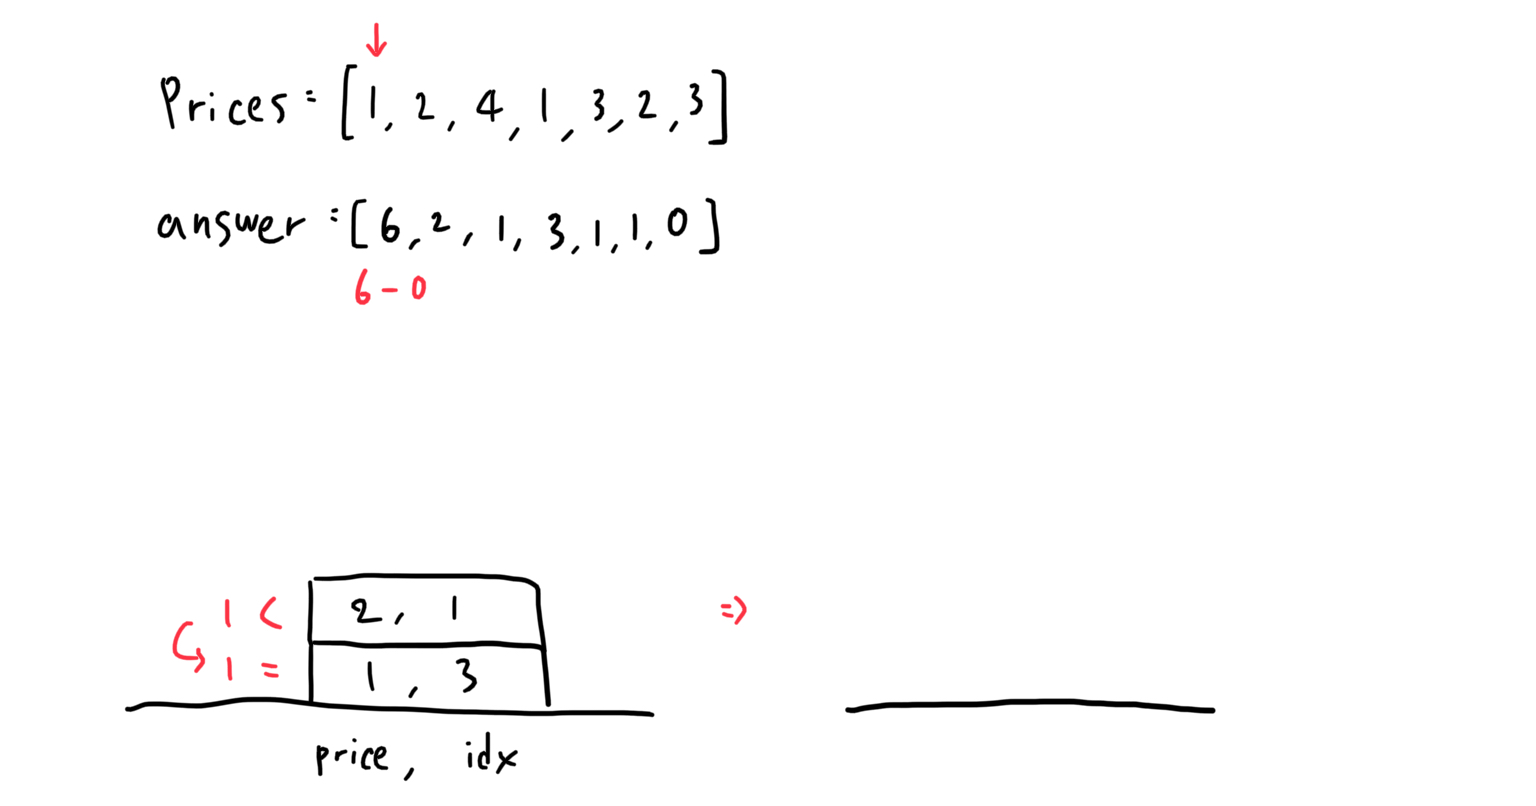 ↓
Prices = [1, 2, 4, 1, 3, 2, 3]
answer = [6, 2, 1, 3, 1, 1, 0]
6 - 0
1 < 2, 1 =>
1 = 1, 3
price, idx